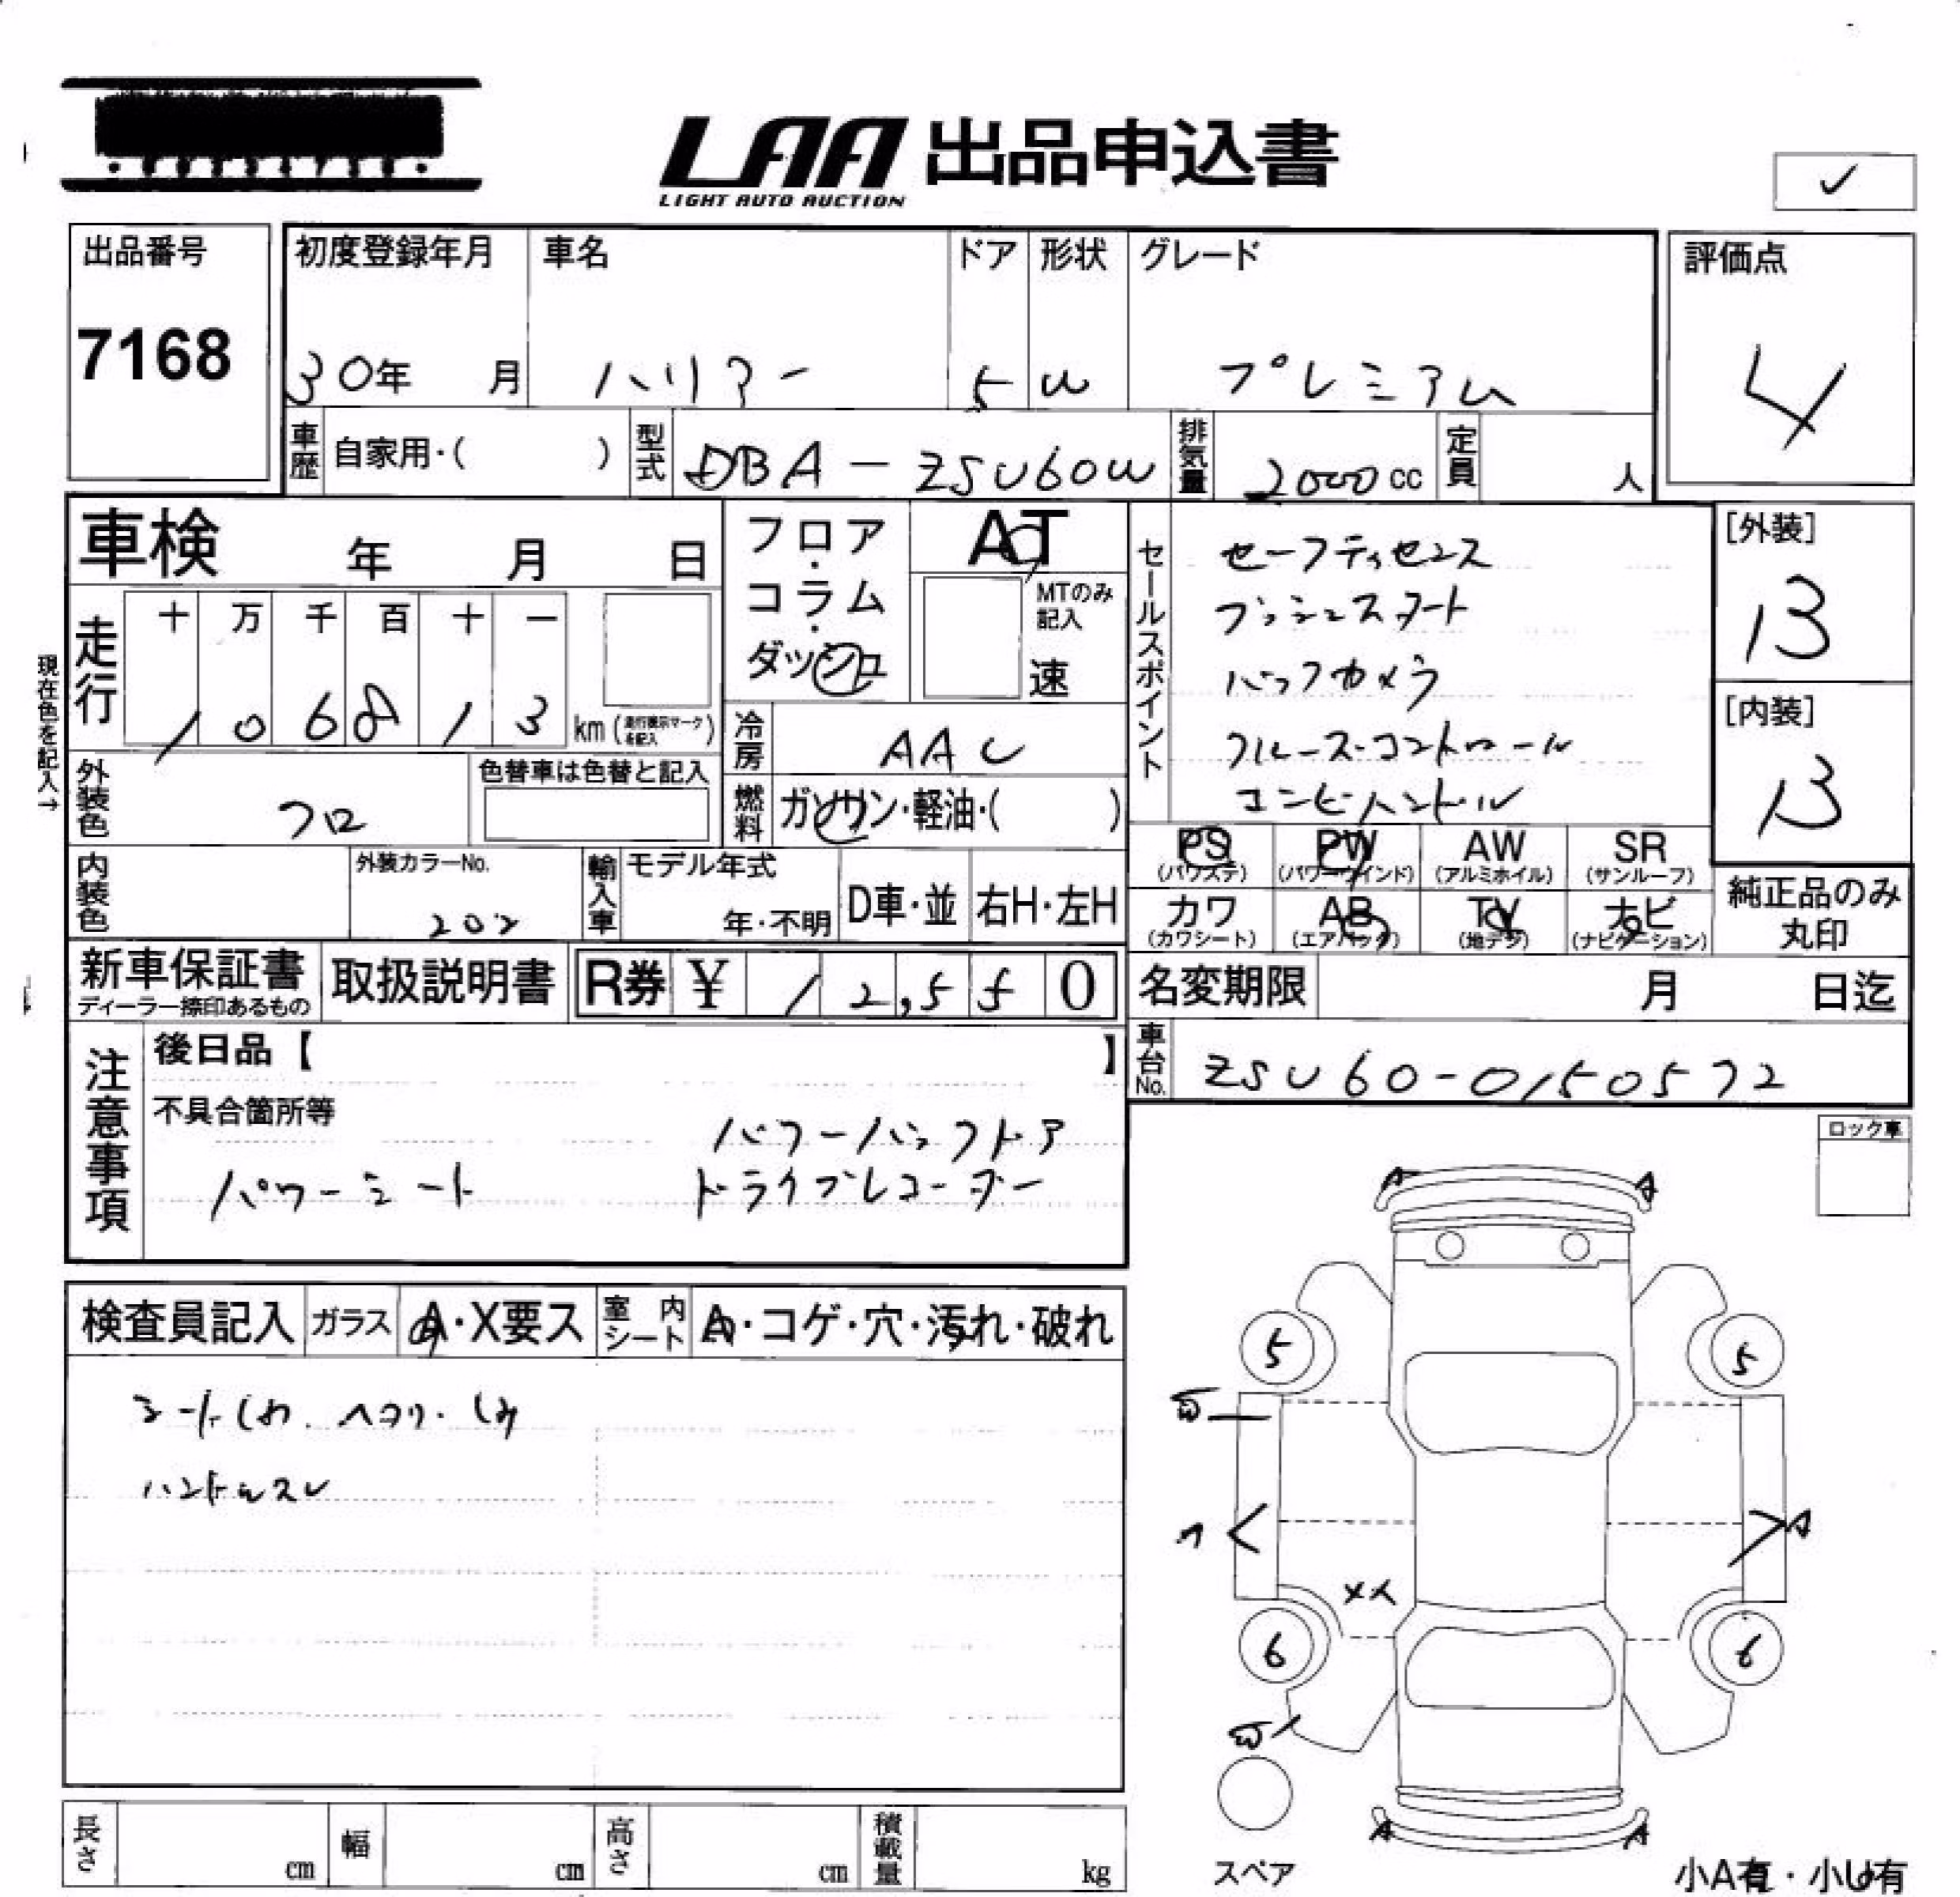 LAA 出品申込書
LIGHT AUTO AUCTION
✓
出品番号
7168
初度登録年月
30年 月
車名
ハリアー
ドア
5
形状
W
グレード
プレミアム
評価点
4
車歴 自家用・( )
型式 DBA-ZSU60W
排気量 2000cc
定員 人
車検 年 月 日
フロア・コラム・ダッシュ
AT
MTのみ記入
速
セールスポイント
セーフティセンス
プッシュスタート
バックカメラ
クルーズ・コントロール
コンビハンドル
[外装]
B
[内装]
B
現在色を記入→
走行
十 万 千 百 十 一
1 0 6 8 1 3 km (走行表示マークを記入)
冷房 AAC
外装色 クロ
色替車は色替と記入
燃料 ガソリン・軽油・( )
PS (パワステ)
PW (パワーウインド)
AW (アルミホイル)
SR (サンルーフ)
カワ (カワシート)
AB (エアバック)
TV (地デジ)
ナビ (ナビゲーション)
純正品のみ丸印
内装色
外装カラーNo.
202
輸入車
モデル年式
年・不明
D車・並
右H・左H
新車保証書
ディーラー捺印あるもの
取扱説明書
R券 ¥ 12,550
名変期限 月 日迄
車台No. ZSU60-0150572
注意事項
後日品【 】
不具合箇所等
パワーバックドア
パワーシート ドライブレコーダー
ロック車
検査員記入
ガラス A・X要ス
室内シート A・コゲ・穴・汚れ・破れ
シートしわ.ヘタリ.しみ
ハンドルスレ
A A
5 5
A
6 6
A A
スペア
小A有・小U有
長さ cm
幅 cm
高さ cm
積載量 kg